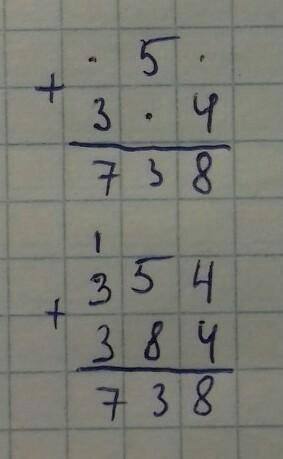 · 5 ·
+
3 · 4
7 3 8
1
3 5 4
+
3 8 4
7 3 8